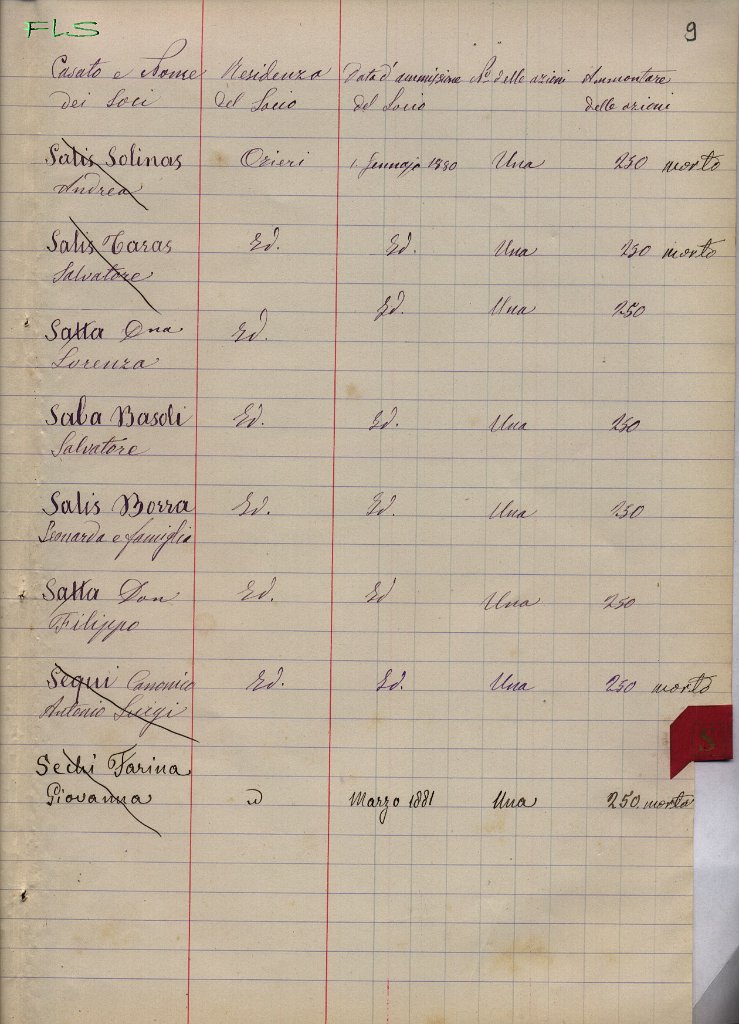 FLS
9
Casato e Nome Residenza Data d'ammissione No. delle azioni Ammontare
dei Soci del Socio del Socio delle azioni
Salis Solinas Ozieri 1. Gennajo 1880 Una 250 morto
Andrea
Salis Taras Id. Id. Una 250 morto
Salvatore
Id. Una 250
Satta Dna Id.
Lorenza
Saba Basoli Id. Id. Una 250
Salvatore
Salis Borra Id. Id. Una 250
Leonarda e famiglia
Satta Don Id. Id Una 250
Filippo
Sequi Canonico Id. Id. Una 250 morto
Antonio Luigi
S
Sechi Farina
Giovanna id Marzo 1881 Una 250. morta